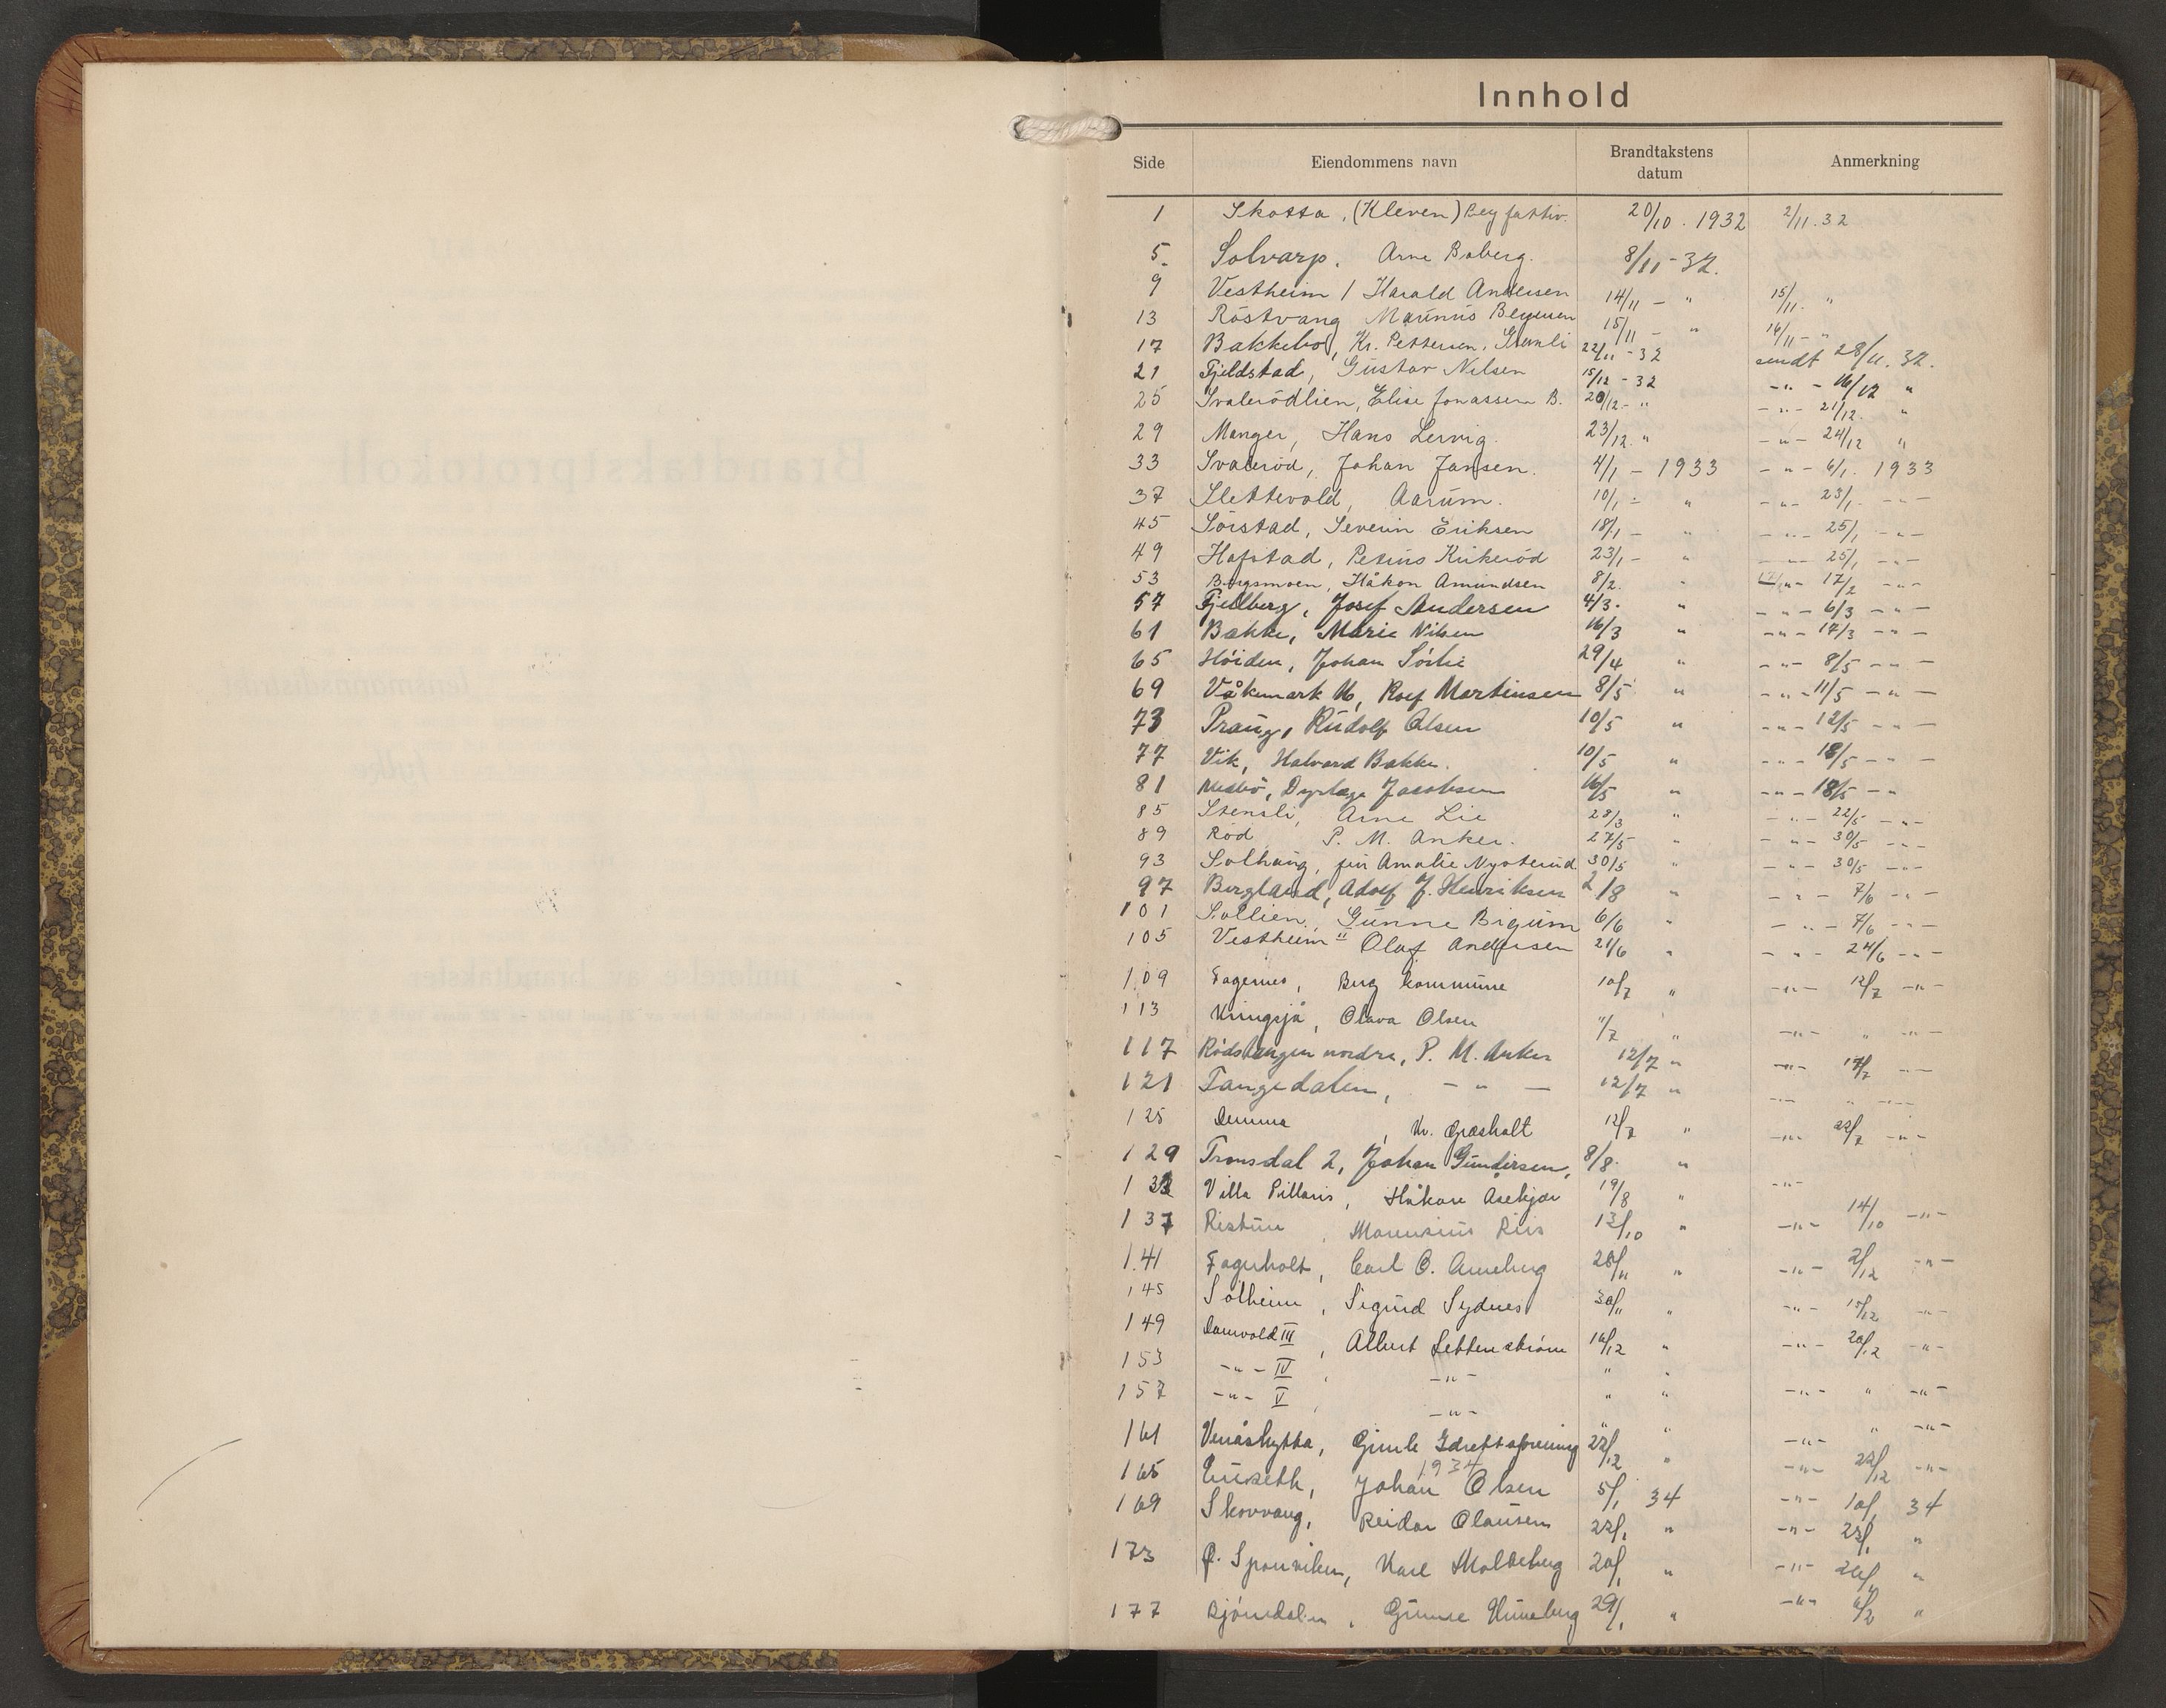 Innhold
Side Eiendommens navn Brandtakstens datum Anmerkning
1 Skotta, (Kleven) 20/10. 1932 2/11. 32
5 Solvarp. Arne Boberg. 8/11 - 32.
9 Vestheim 1 Harald Andersen 14/11 - " 15/11. "
13 Röstvang 15/11 - " 16/11 - "
17 Bakkebo, Kr. Pettersen, 22/11 - 32 sendt 28/11. 32.
21 Fjeldstad, Gustav Nilsen 15/12 - 32 - " - 16/12 "
25 Svalerödlien, Elise Jonassen B. 20/12 - " - " - 21/12. "
29 Manger, Hans Lervig. 23/12. " - " - 24/12 "
33 Svaleröd, Johan Jansen. 4/1 - 1933 - " - 6/1. 1933
37 Slettevold, Aarum. 10/1 - " - " - 23/1 - " -
45 Sörstad, Severin Eriksen 18/1 - " - " - 25/1 - " -
49 Hafstad, Petrus Kirkeröd 23/1 - " - " - 25/1 - " -
53 Bergsmoen, Håkon Amundsen 8/2. " 17/2 - " -
57 Fjellberg, Josef Andersen 4/3. " - " - 6/3 - " -
61 Bakke, Marie Nilsen 16/3 " - " - 17/3 - " -
65 Höiden, Johan Sörlie 29/4 " - " - 8/5 - " -
69 Våkemark Rolf Martinsen 8/5 " - " - 11/5 - " -
73 Prang, Rudolf Olsen 10/5 " - " - 12/5 - " -
77 Vik, Halvard Bakke. 10/5 " - " - 18/5 - " -
81 Jacobsen 16/5 " - " - 18/5 - " -
85 Stensli, Arne Lie 28/3 " - " - 22/5 - " -
89 Röd P. M. Anker. 27/5 " - " - 30/5 - " -
93 Solhaug, Amalie Nysterud 30/5 " - " - 30/5 - " -
97 Bergland, Adolf J. Henriksen 2/8 " - " - 7/6 - " -
101 Sollien, Gunne Bigum 6/6 " - " - 7/6 - " -
105 Vestheim II Olaf Andersen 21/6 " - " - 24/6 - " -
109 Fagernes, Berg kommune 10/7 " - " - 12/7 - " -
113 Kringsjå, Olava Olsen 11/7 " - " - " - " -
117 Rödstangen nordre, P. M. Anker 12/7 " - " - 17/7 - " -
121 Tangedalen, - " - 12/7 " - " - " - " -
125 Demma, Kr. Græsholt 12/7 " - " - 22/7 - " -
129 Tronsdal 2, Johan Gundersen, 8/8. "
133 Villa Håkon Asekjær 19/8 " - " -
137 Ristun, Marensius Riis 13/10 " - " - 14/10 - " -
141 Fagerholt, Carl O. Anneberg 28/11 " - " - 2/12 - " -
145 Solheim, Sigurd Sydnes 30/11 " - " - 15/12 - " -
149 Damvold III, Albert Settenström 16/12 " - " - 20/12 - " -
153 - " - IV, - " - " "
157 - " - V, - " - " " - " - " - " -
161 Venåshytta, Gimle Idrettsforening 22/12 " - " - " - " -
1934
165 Johan Olsen 5/1 34 - " - 22/12 - " -
169 Skovvang, Reidar Olausen 22/1 " - " - 10/1 34
173 Sponviken, Karl Moldeberg 20/1 " - " - 23/1 "
177 Björndalen, Gunne Unneberg 29/1 " - " - 6/2 "